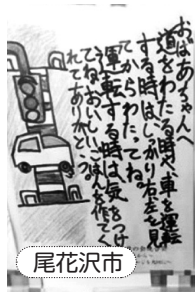 おばあちゃんへ
道をわたる時や、車を運転
する時はしっかり右左を見
てからわたってね。
運転する時は気をつけ
てね。おいしいごはんを作てく
れてありがとう。
尾花沢市